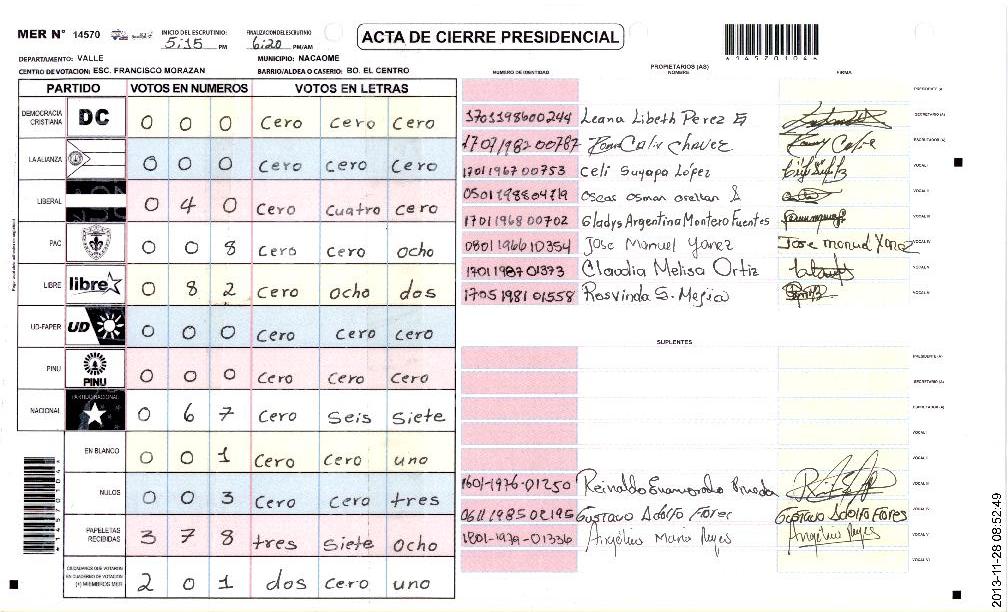 MER N° 14570
INICIO DEL ESCRUTINIO: 5:15 PM
FINALIZACION DEL ESCRUTINIO 6:20 PM/AM
ACTA DE CIERRE PRESIDENCIAL
DEPARTAMENTO: VALLE
MUNICIPIO: NACAOME
CENTRO DE VOTACION: ESC. FRANCISCO MORAZAN
BARRIO/ALDEA O CASERIO: BO. EL CENTRO
PARTIDO VOTOS EN NUMEROS VOTOS EN LETRAS
DEMOCRACIA CRISTIANA DC 0 0 0 Cero Cero Cero
LA ALIANZA 0 0 0 Cero Cero Cero
LIBERAL 0 4 0 Cero Cuatro Cero
PAC 0 0 8 Cero Cero ocho
LIBRE libre 0 8 2 Cero ocho dos
UD-FAPER UD 0 0 0 Cero Cero Cero
PINU PINU 0 0 0 Cero Cero Cero
NACIONAL PARTIDO NACIONAL 0 6 7 Cero Seis Siete
EN BLANCO 0 0 1 Cero Cero uno
NULOS 0 0 3 Cero Cero tres
PAPELETAS RECIBIDAS 3 7 8 tres Siete Ocho
CIUDADANOS QUE VOTARON EN CUADERNO DE VOTACION (+) MIEMBROS MER 2 0 1 dos cero uno
41457010 4
PROPIETARIOS (AS)
NUMERO DE IDENTIDAD NOMBRE FIRMA
PRESIDENTE (A)
1701198600244 Leana Libeth Perez SECRETARIO (A)
1707198200787 Calix Chavez ESCRUTADOR (A)
1701196700753 Celi Suyapa López VOCAL I
0501198804719 Oseas Osman orellan VOCAL II
1701196800702 Gladys Argentina Montero Fuentes VOCAL III
0801196610354 Jose Manuel Yanez Jose manuel Yanez VOCAL IV
1701198701373 Claudia Melisa Ortiz VOCAL V
1705198101558 Rosvinda S. Mejia VOCAL VI
SUPLENTES
PRESIDENTE (A)
SECRETARIO (A)
ESCRUTADOR (A)
VOCAL I
VOCAL II
1601-1976-01250 Reinaldo Enamorado Pineda VOCAL III
0611198502195 Gustavo Adolfo Flores Gustavo Adolfo Flores VOCAL IV
1801-1979-01336 Angélica Maria Reyes Angélica Reyes VOCAL V
VOCAL VI
2013-11-28 08:52:49